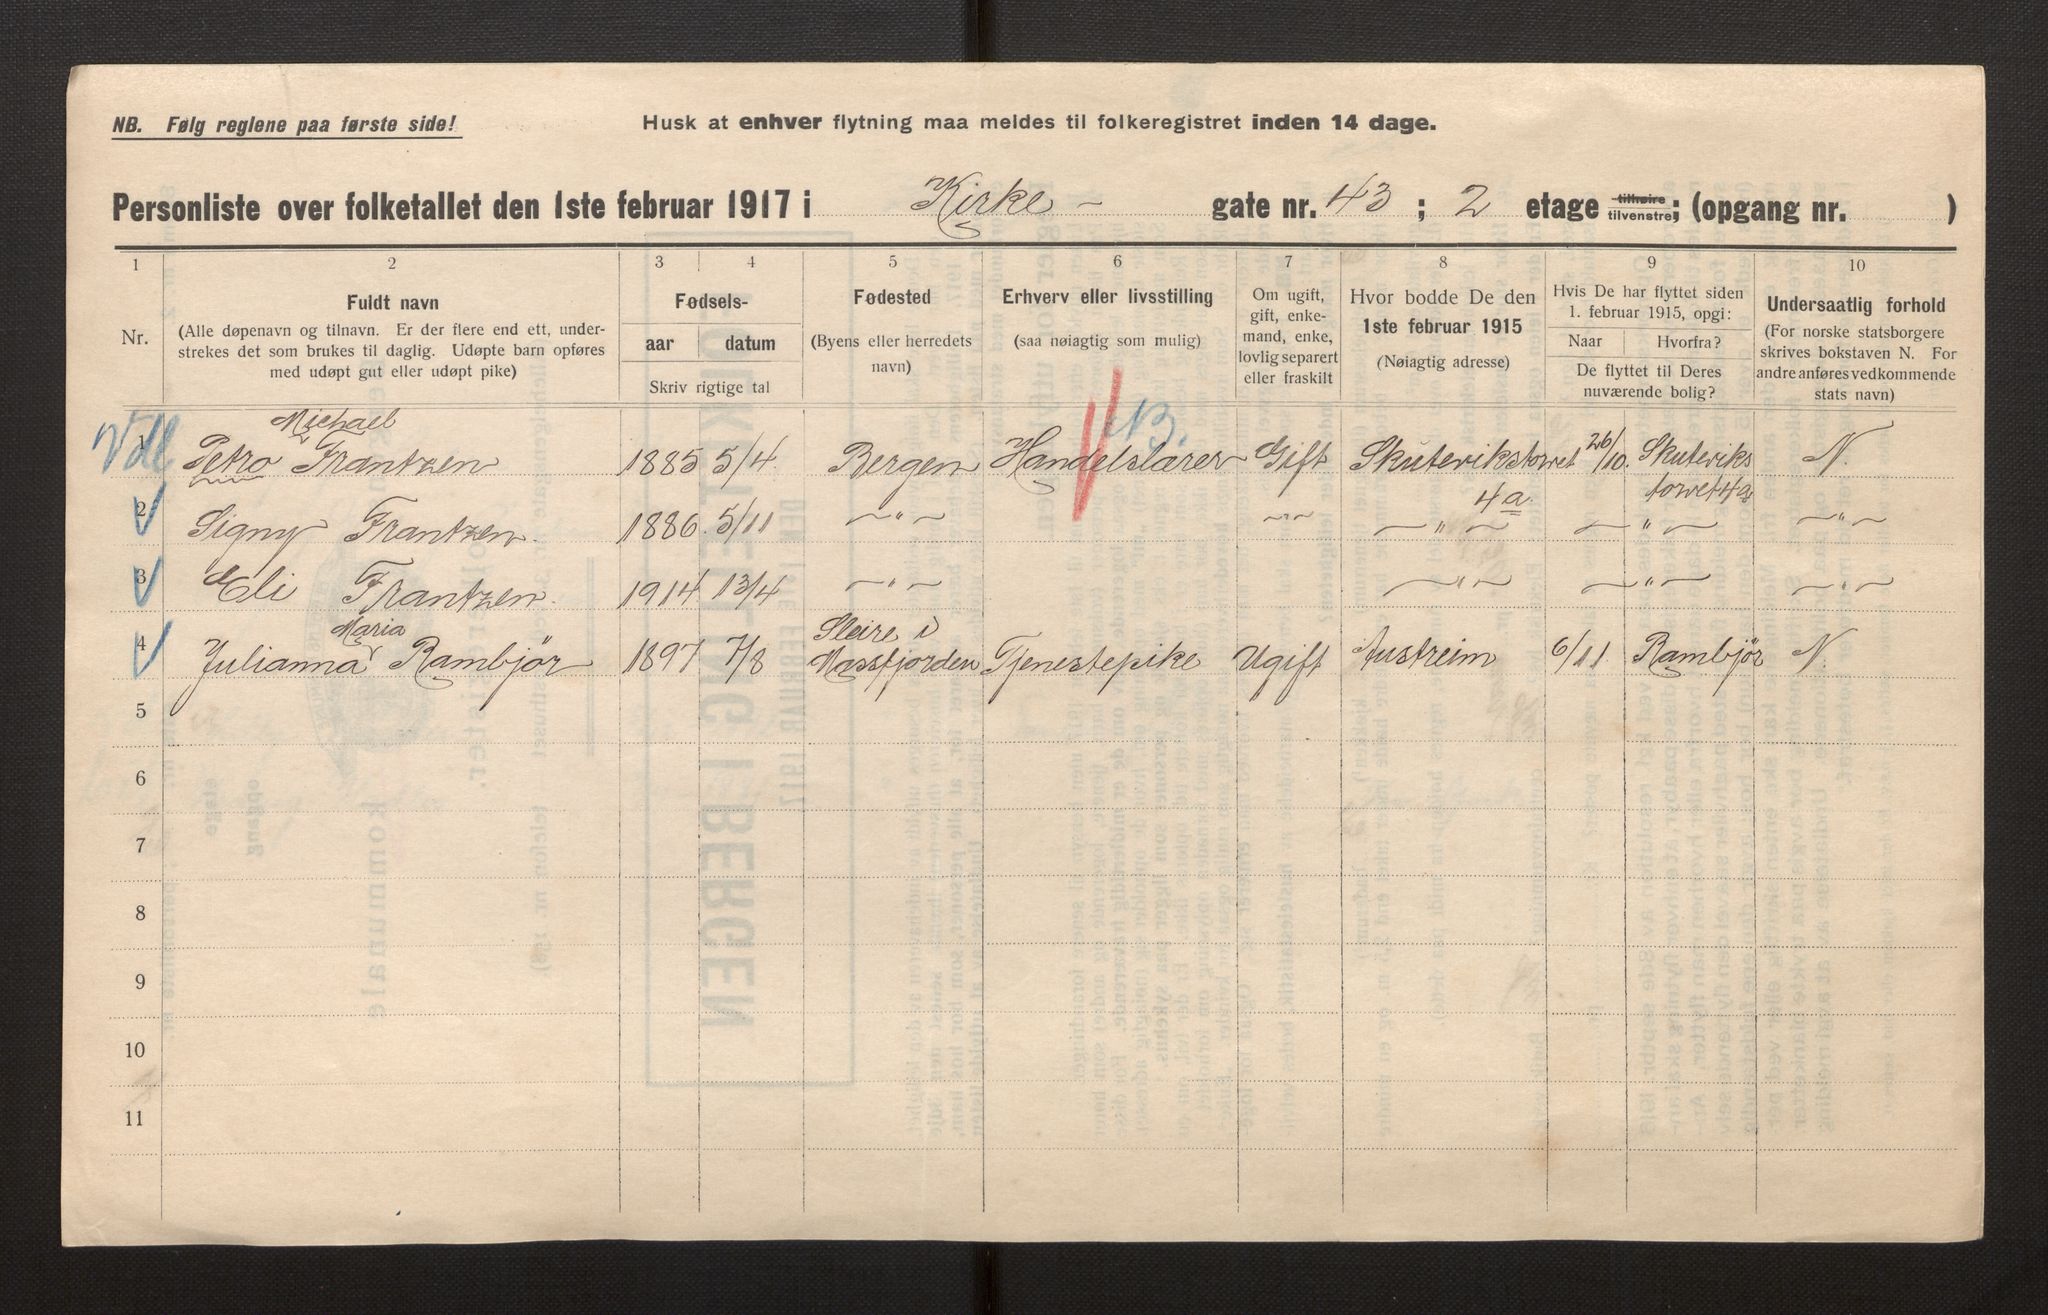 NB. Følg reglene paa første side!
Husk at enhver flytning maa meldes til folkeregistret inden 14 dage.
Personliste over folketallet den 1ste februar 1917 i Kirke - gate nr. 43 ; 2 etage tilhøire tilvenstre; (opgang nr. )
1 2 3 4 5 6 7 8 9 10
Nr.
Fuldt navn
(Alle døpenavn og tilnavn. Er der flere end ett, under-
strekes det som brukes til daglig. Udøpte barn opføres
med udøpt gut eller udøpt pike)
Fødsels-
aar datum
Skriv rigtige tal
Fødested
(Byens eller herredets
navn)
Erhverv eller livsstilling
(saa nøiagtig som mulig)
Om ugift,
gift, enke-
mand, enke,
lovlig separert
eller fraskilt
Hvor bodde De den
1ste februar 1915
(Nøiagtig adresse)
Hvis De har flyttet siden
1. februar 1915, opgi:
Naar Hvorfra?
De flyttet til Deres
nuværende bolig?
Undersaatlig forhold
(For norske statsborgere
skrives bokstaven N. For
andre anføres vedkommende
stats navn)
Michael
1 Petro Frantzen 1885 5/4 Bergen Handelslærer Gift Skutevikstorvet 26/10. Skuteviks N.
NB.
4a. torvet 4a
2 Signy Frantzen. 1886. 5/11 —"— —"— —"— —"— —"—
3 Eli Frantzen. 1914. 13/4 —"— —"— —"— —"—
Maria Sleire i
4 Julianna Rambjør 1897 7/8 Massfjorden Tjenestepike Ugift Austreim 6/11 Rambjør N.
5
6
7
8
9
10
11